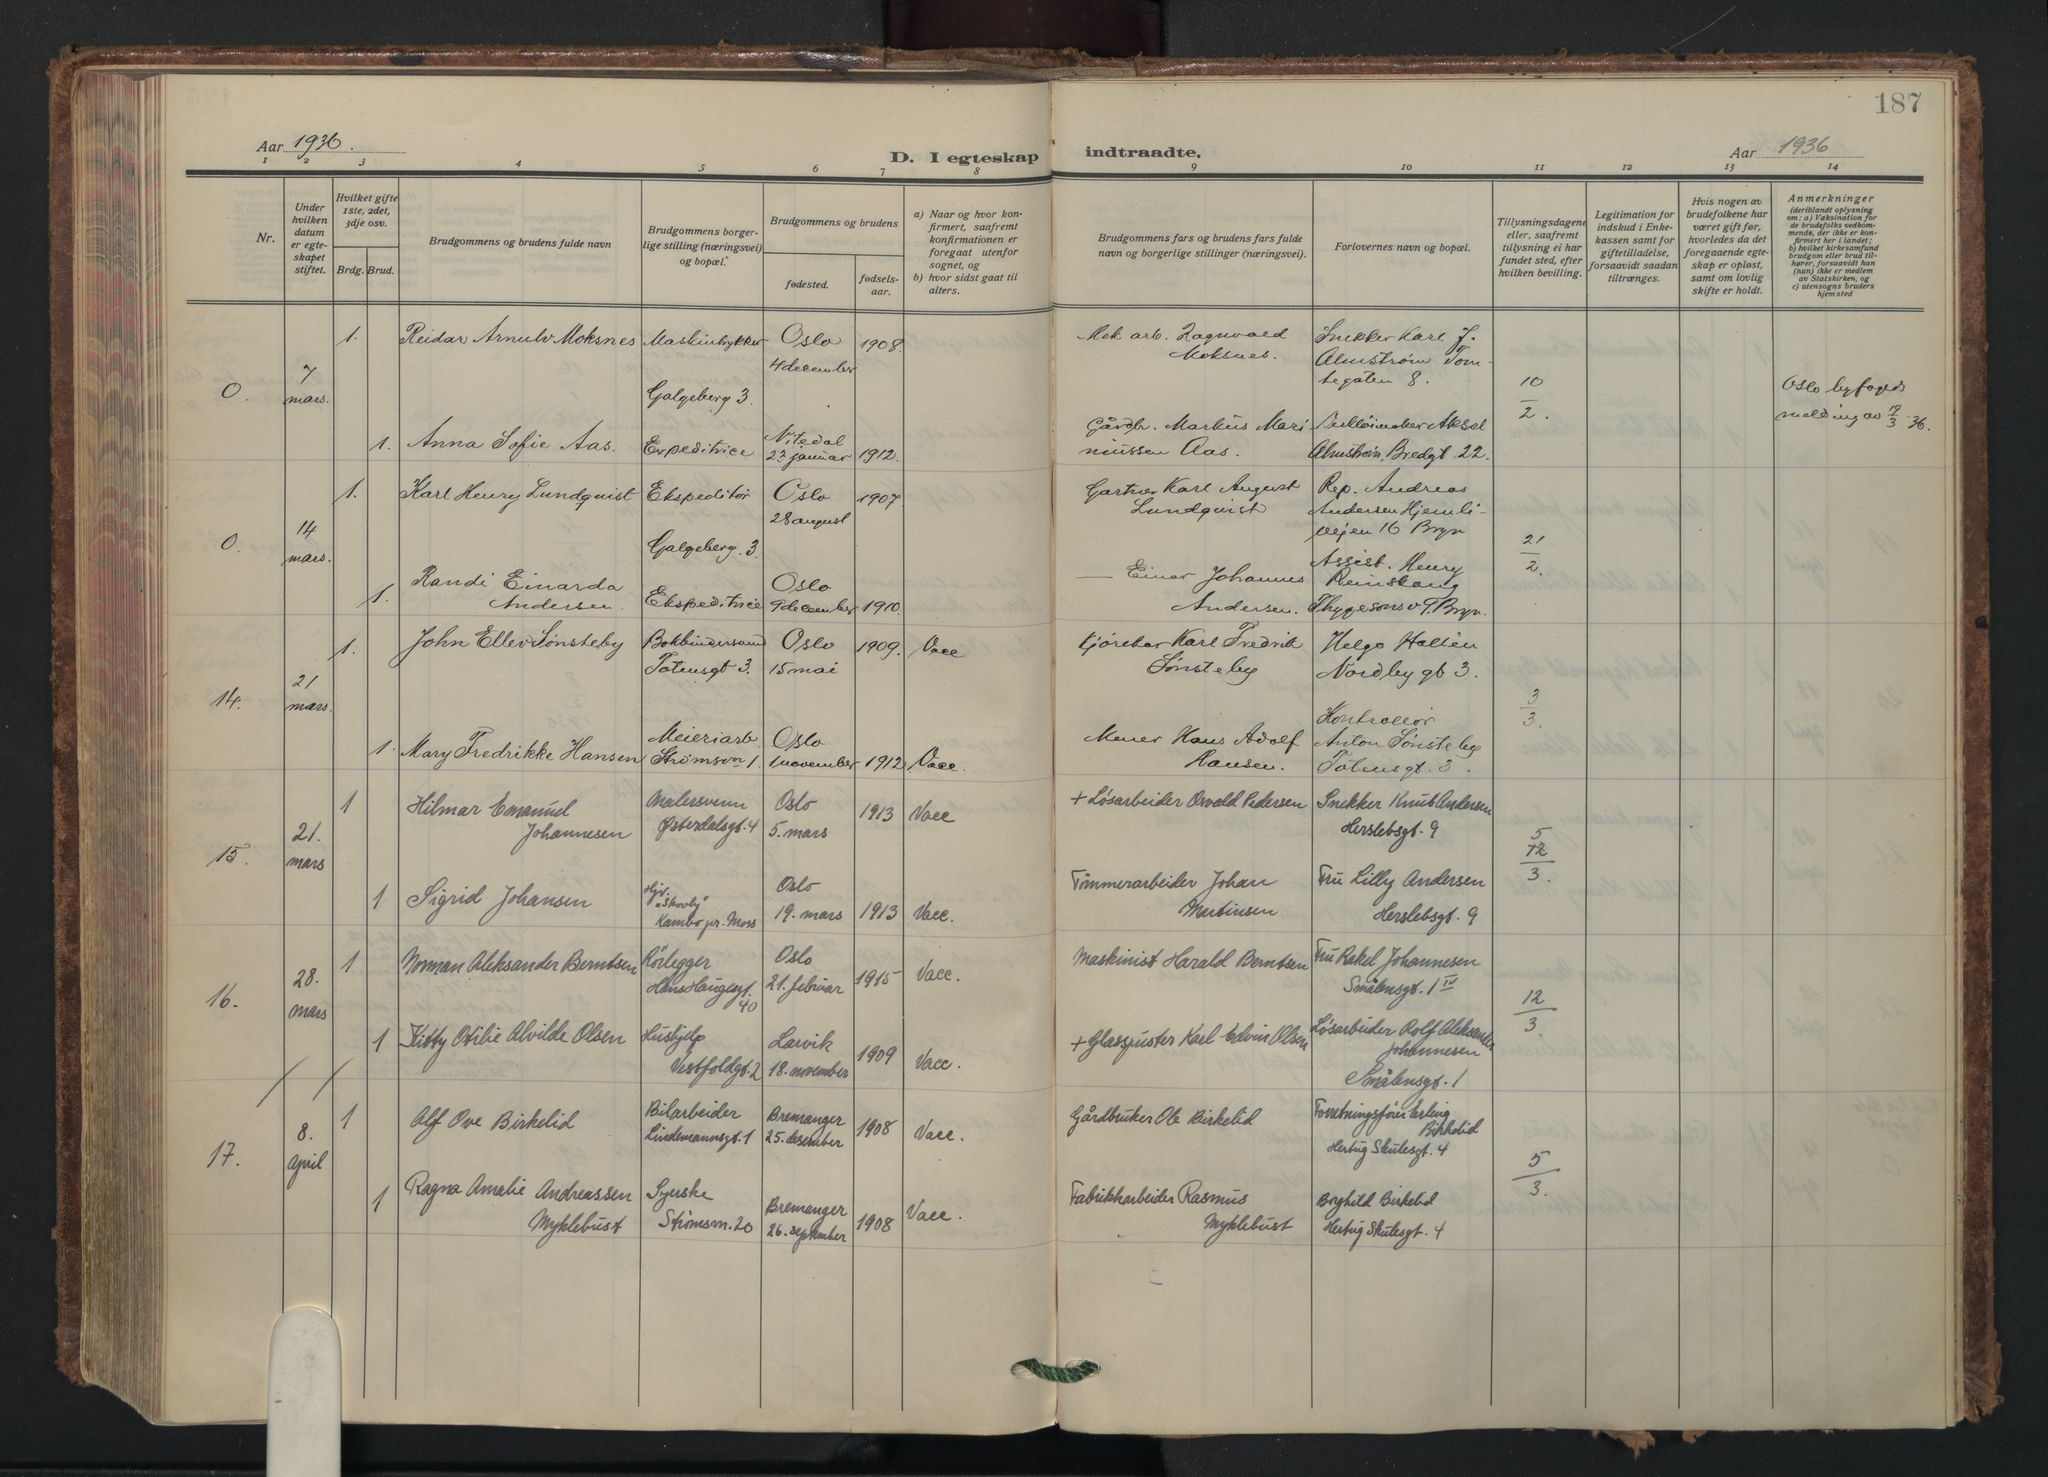 187
Aar 1936.
D. I egteskap indtraadte.
Aar 1936
1 2 3 4 5 6 7 8 9 10 11 12 13 14
Nr.
Under hvilken datum er egte-skapet stiftet.
Hvilket gifte 1ste, 2det, 3dje osv.
Brdg. Brud.
Brudgommens og brudens fulde navn
Brudgommens borger-lige stilling (næringsvei) og bopæl.
Brudgommens og brudens
fødested.
fødsels-aar.
a) Naar og hvor kon-firmert, saafremt konfirmationen er foregaat utenfor sognet, og
b) hvor sidst gaat til alters.
Brudgommens fars og brudens fars fulde navn og borgerlige stillinger (næringsvei).
Forlovernes navn og bopæl.
Tillysningsdagene eller, saafremt tillysning ei har fundet sted, efter hvilken bevilling.
Legitimation for indskud i Enke-kassen samt for giftetilladelse, forsaavidt saadan tiltrænges.
Hvis nogen av brudefolkene har været gift før, hvorledes da det foregaaende egte-skap er opløst, samt om lovlig skifte er holdt.
Anmerkninger
(deriblandt oplysning om: a) Vaksination for de brudefolks vedkom-mende, der ikke er kon-firmert her i landet;
b) hvilket kirkesamfund brudgom eller brud til-hører, forsaavidt han (hun) ikke er medlem av Statskirken, og
c) utensogns bruders hjemsted
0. 7 mars.
1. Reidar Arnulv Moksnes Maskintrykker Galgeberg 3. Oslo 4 december 1908. Mek. arb. Ragnvald Moksnes. Snekker Karl J. Almstrøm Tom-tegaten 8.
10/2.
Oslo byfogeds melding av 9/3-36.
1. Anna Sofie Aas. Expeditrice Nitedal 23 januar 1912. Gårdbr. Markus Mari-niussen Aas. Aksel Almstrøm, Bredgt 22.
0. 14 mars.
1. Karl Henry Lundquist Ekspeditør Galgeberg 3. Oslo 28 august 1907. Gartner Karl August Lundquist Rep. Andreas Andersen Hjemli-veien 16 Bryn
21/2.
1. Randi Einarda Andersen. Ekspeditrice Oslo 9 december 1910. — Einar Johannes Andersen. Assist. Henry Reinskaug Thygesons v 9. Bryn.
14. 21 mars.
1. John Ellev Sønsteby Bokbindersvend Totensgt 3. Oslo 15 mai 1909. Vacc Kjørekar Karl Fredrik Sønsteby Helge Hallén Nordbygt 3.
3/3.
1. Mary Fredrikke Hansen Meieriarb. Strømsvn 1. Oslo 1 november 1912 Vacc. Murer Hans Adolf Hansen. Kontrollør Anton Sønsteby Totensgt. 3.
15. 21. mars
1 Hilmar Emanuel Johannesen Malersvenn Østerdalsgt. 4 Oslo 5. mars 1913 Vacc + Løsarbeider Osvald Pedersen Snekker Knut Andersen Herslebsgt. 9
5 12/3.
1 Sigrid Johansen Hjv. "Skovly" Kambo pr. Moss Oslo 19. mars 1913 Vacc. Tømmerarbeider Johan Martinsen Fru Lilly Andersen Herslebsgt. 9
16. 28. mars
1 Norman Aleksander Berntsen Rørlegger Hans Haugesgt. 40 Oslo 21. februar 1915 Vacc. Maskinist Harald Berntsen Fru Rakel Johannesen Smålensgt. 1 IV
12/3.
1 Kitty Otilie Alvilde Olsen Hushjelp Vestfoldgt. 2 Larvik 18. november 1909 Vacc. + Glasspuster Karl Edvin Olsen Løsarbeider Rolf Aleksander Johannesen Smålensgt. 1
17. 8. april
1 Alf Ove Birkelid Bilarbeider Lindemannsgt. 1 Bremanger 25. desember 1908 Vacc. Gårdbruker Ole Birkelid Forretningsfører Erling Birkelid Hertug Skulesgt. 4
5/3.
1 Ragna Amalie Andreassen Myklebust Syerske Strømsvn. 20 Bremanger 26. september 1908 Vacc. Fabrikkarbeider Rasmus Myklebust Borghild Birkelid Hertug Skulesgt. 4